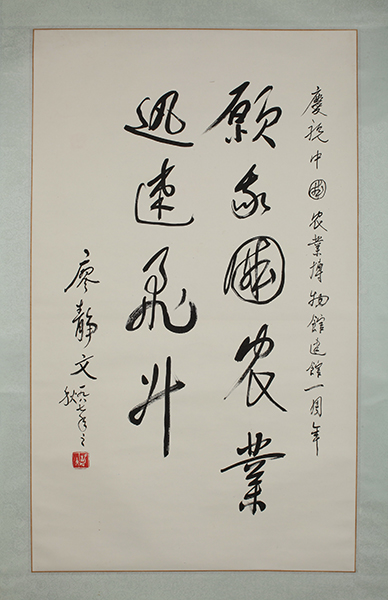 慶祝中國农業博物館建館一周年
願我國农業
迅速飛升
廖靜文
一九八七年之
秋